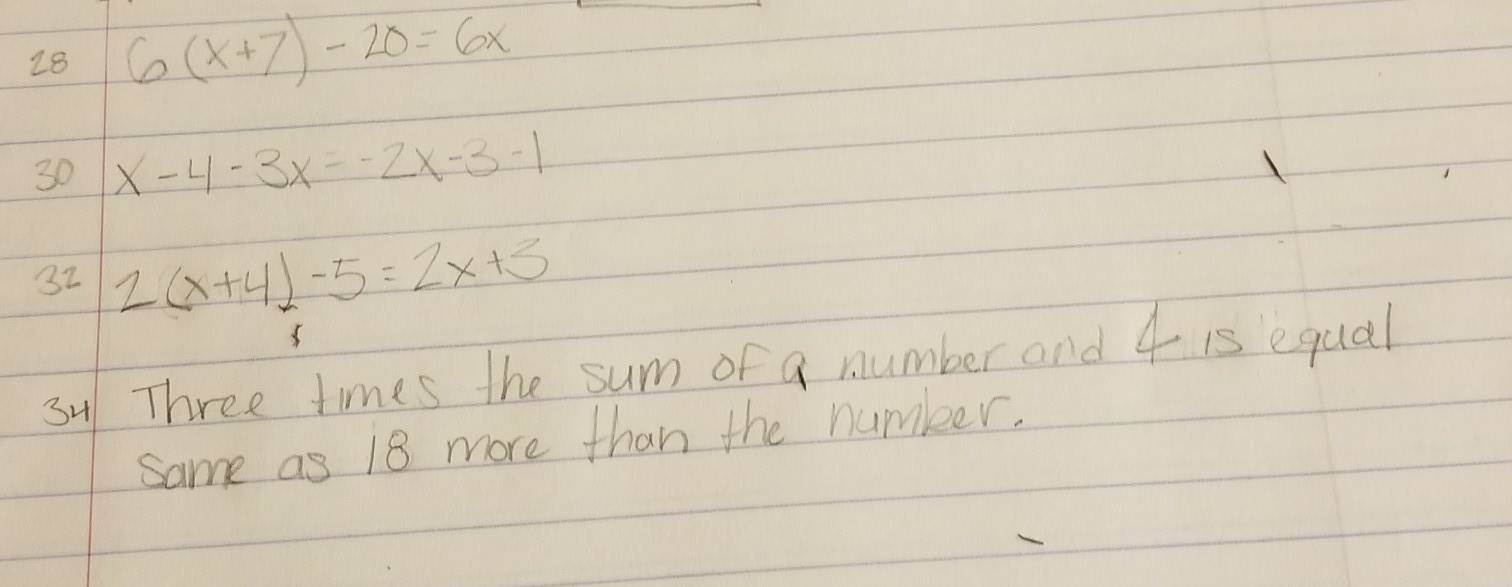 28 6(x+7) - 20 = 6x
30 x - 4 - 3x = -2x - 3 - 1
32 2(x+4) - 5 = 2x + 3
34 Three times the sum of a number and 4 is equal
same as 18 more than the number.